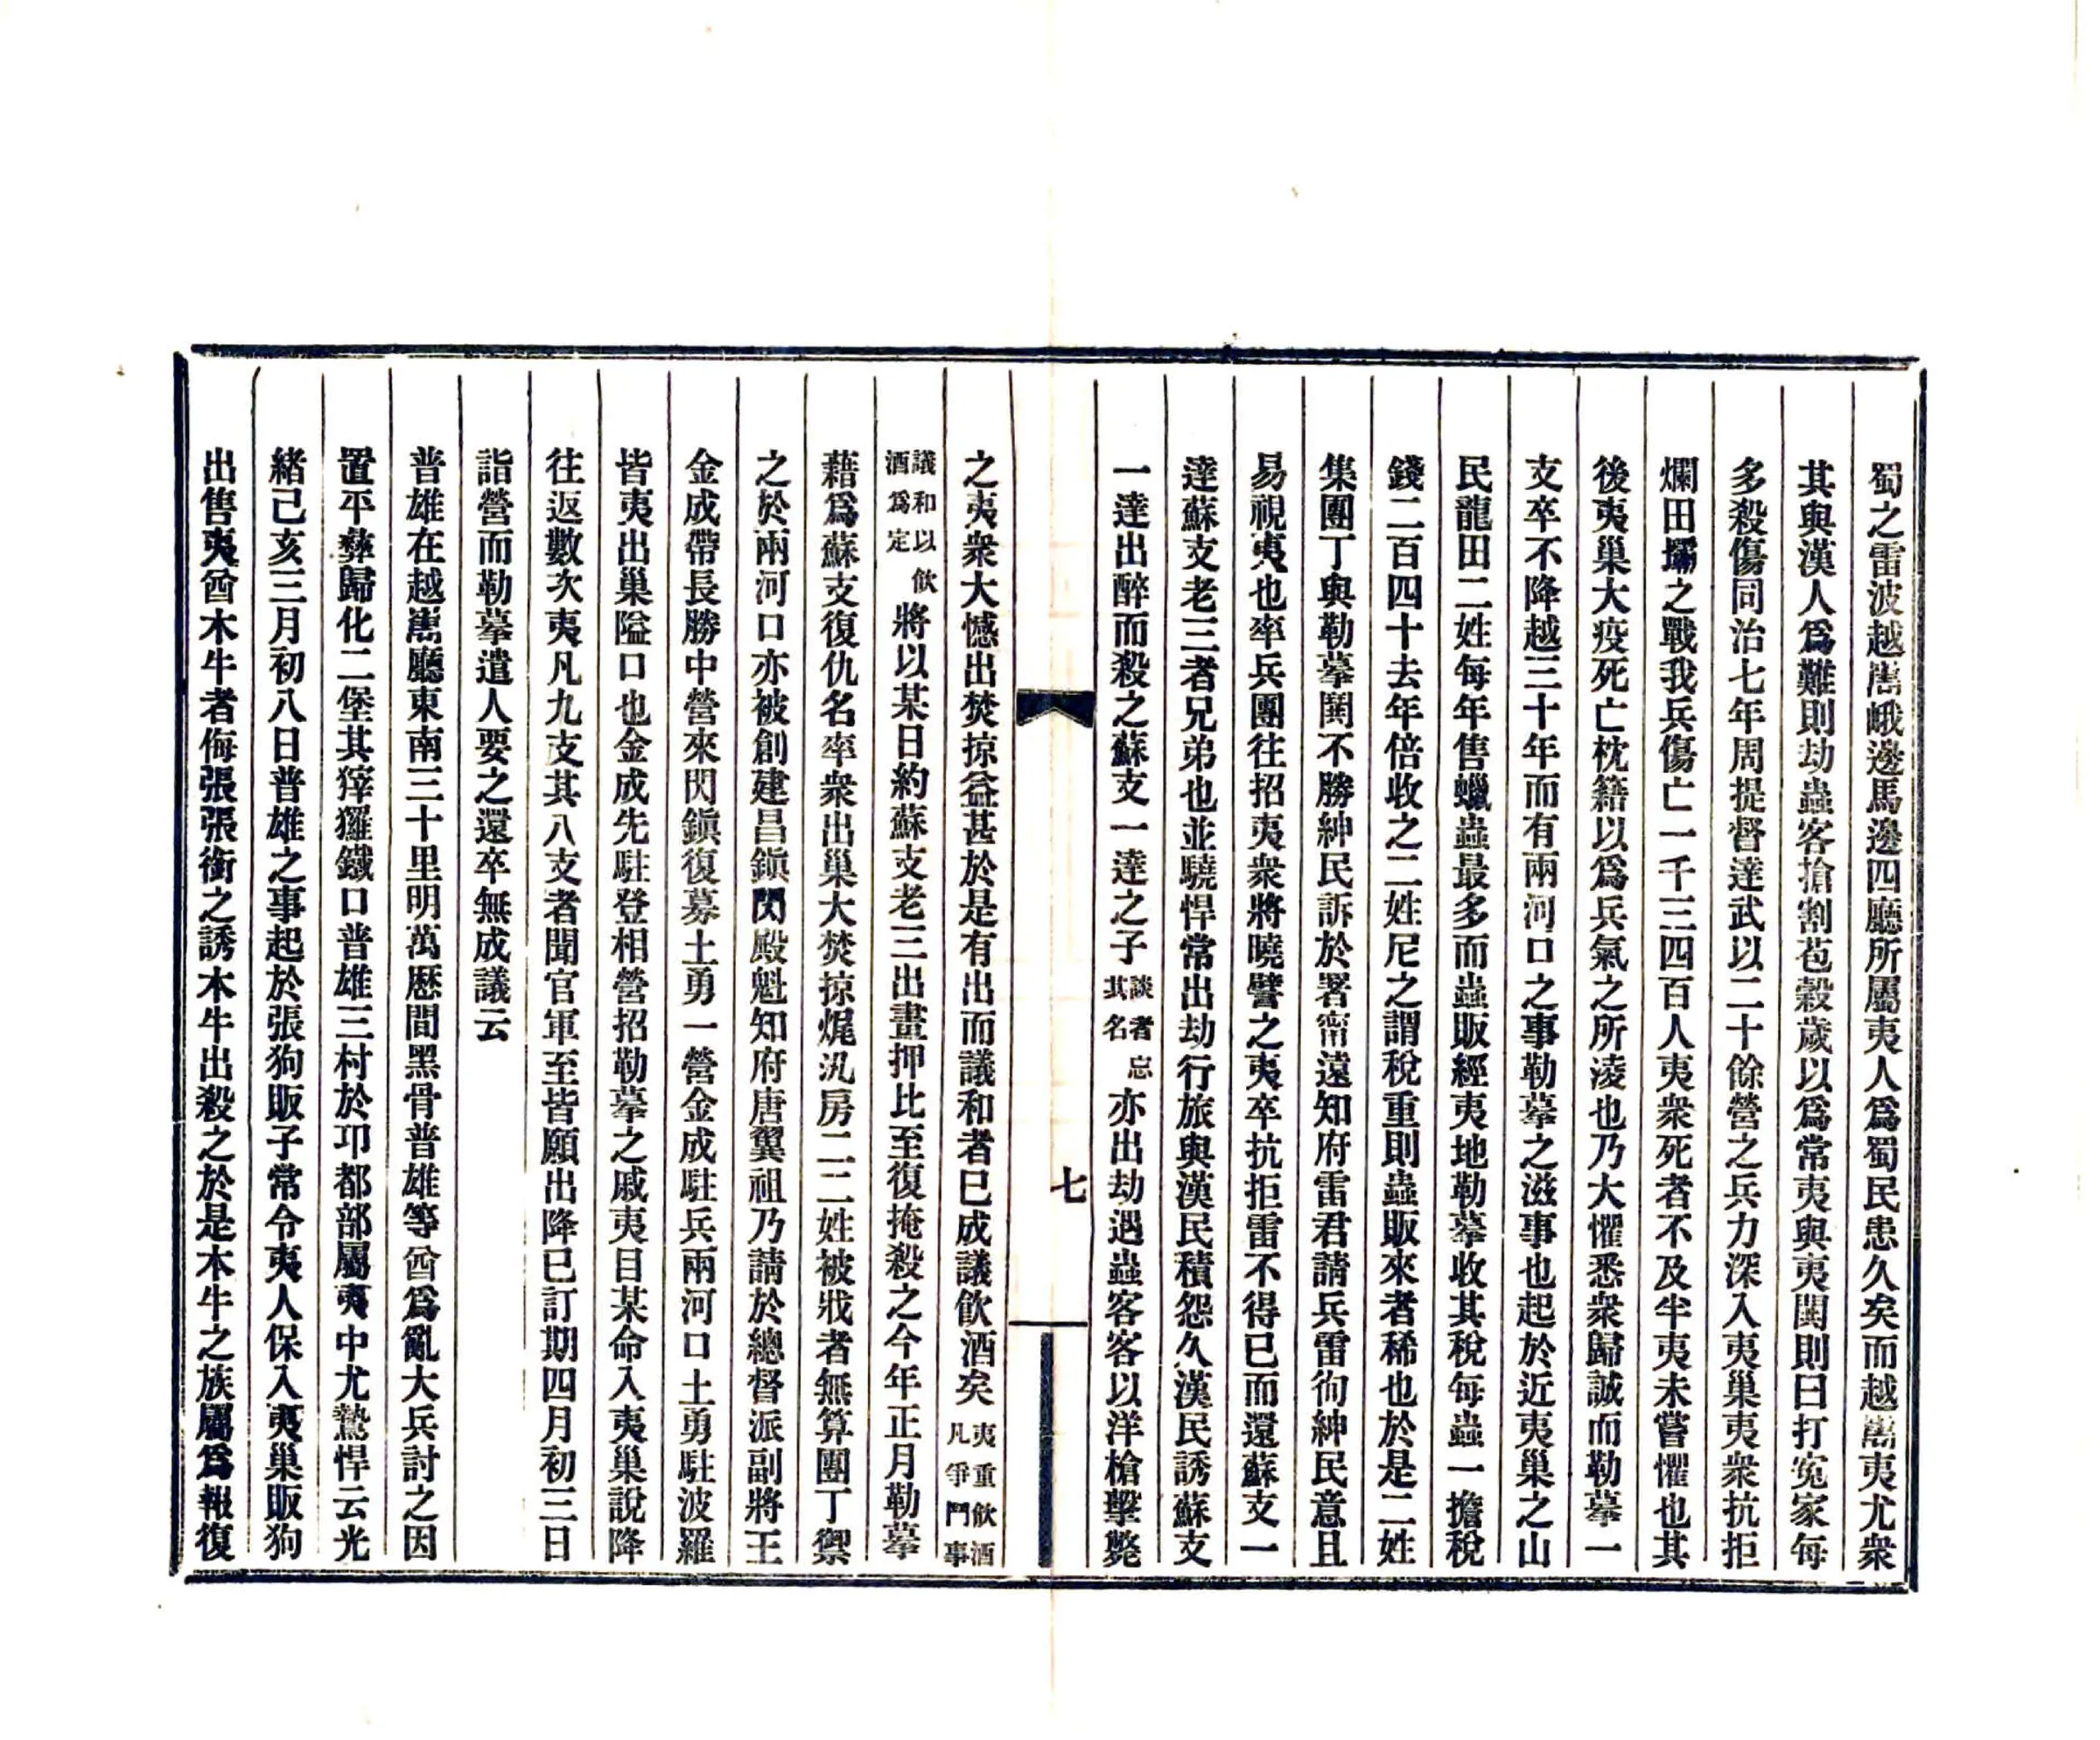 蜀之雷波越嶲峨邊馬邊四廳所屬夷人爲蜀民患久矣而越嶲夷尤衆
其與漢人爲難則劫蟲客搶割苞穀歲以爲常夷與夷鬨則曰打冤家每
多殺傷同治七年周提督達武以二十餘營之兵力深入夷巢夷衆抗拒
爛田壩之戰我兵傷亡一千三四百人夷衆死者不及半夷未嘗懼也其
後夷巢大疫死亡枕籍以爲兵氣之所淩也乃大懼悉衆歸誠而勒摹一
支卒不降越三十年而有兩河口之事勒摹之滋事也起於近夷巢之山
民龍田二姓每年售蠟蟲最多而蟲販經夷地勒摹收其稅每蟲一擔稅
錢二百四十去年倍收之二姓尼之謂稅重則蟲販來者稀也於是二姓
集團丁與勒摹鬨不勝紳民訴於署甯遠知府雷君請兵雷徇紳民意且
易視夷也率兵團往招夷衆將曉譬之夷卒抗拒雷不得已而還蘇支一
達蘇支老三者兄弟也並驍悍常出劫行旅與漢民積怨久漢民誘蘇支
一達出醉而殺之蘇支一達之子談者忘其名亦出劫遇蟲客客以洋槍擊斃
七
之夷衆大憾出焚掠益甚於是有出而議和者已成議飲酒矣夷重飲酒凡爭鬥事
議和以飲酒爲定將以某日約蘇支老三出畫押比至復掩殺之今年正月勒摹
藉爲蘇支復仇名率衆出巢大焚掠焜汛房二二姓被戕者無算團丁禦
之於兩河口亦被創建昌鎮閃殿魁知府唐翼祖乃請於總督派副將王
金成帶長勝中營來閃鎮復募土勇一營金成駐兵兩河口土勇駐波羅
皆夷出巢隘口也金成先駐登相營招勒摹之戚夷目某命入夷巢說降
往返數次夷凡九支其八支者聞官軍至皆願出降已訂期四月初三日
詣營而勒摹遣人要之還卒無成議云
普雄在越嶲廳東南三十里明萬歷間黑骨普雄等酋爲亂大兵討之因
置平彝歸化二堡其猓玀鐵口普雄三村於邛都部屬夷中尤鷙悍云光
緒己亥三月初八日普雄之事起於張狗販子常令夷人保入夷巢販狗
出售夷酋木牛者侮張張銜之誘木牛出殺之於是木牛之族屬爲報復